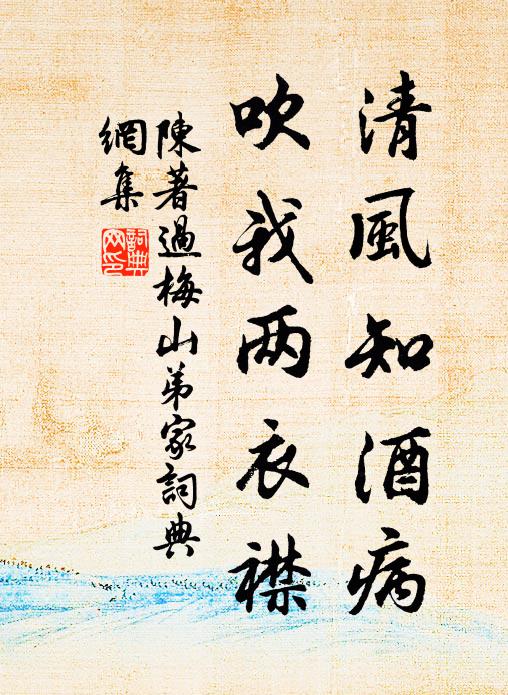 清風知酒病
吹我两衣襟
陳著過梅山弟家詞典
網集
詞典
网印